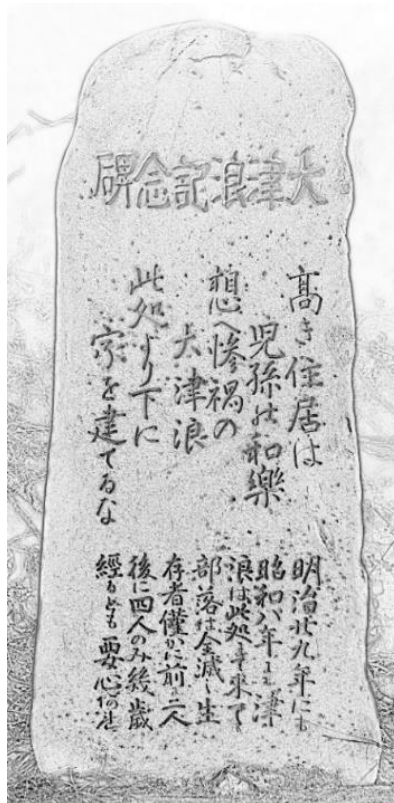 大津浪記念碑
高き住居は
児孫の和樂
想へ惨禍の
大津浪
此処より下に
家を建てるな
明治廿九年にも
昭和八年にも津
浪は此処まで来て
部落は全滅し生
存者僅かに前に二人
後に四人のみ幾歳
經るとも要心何從